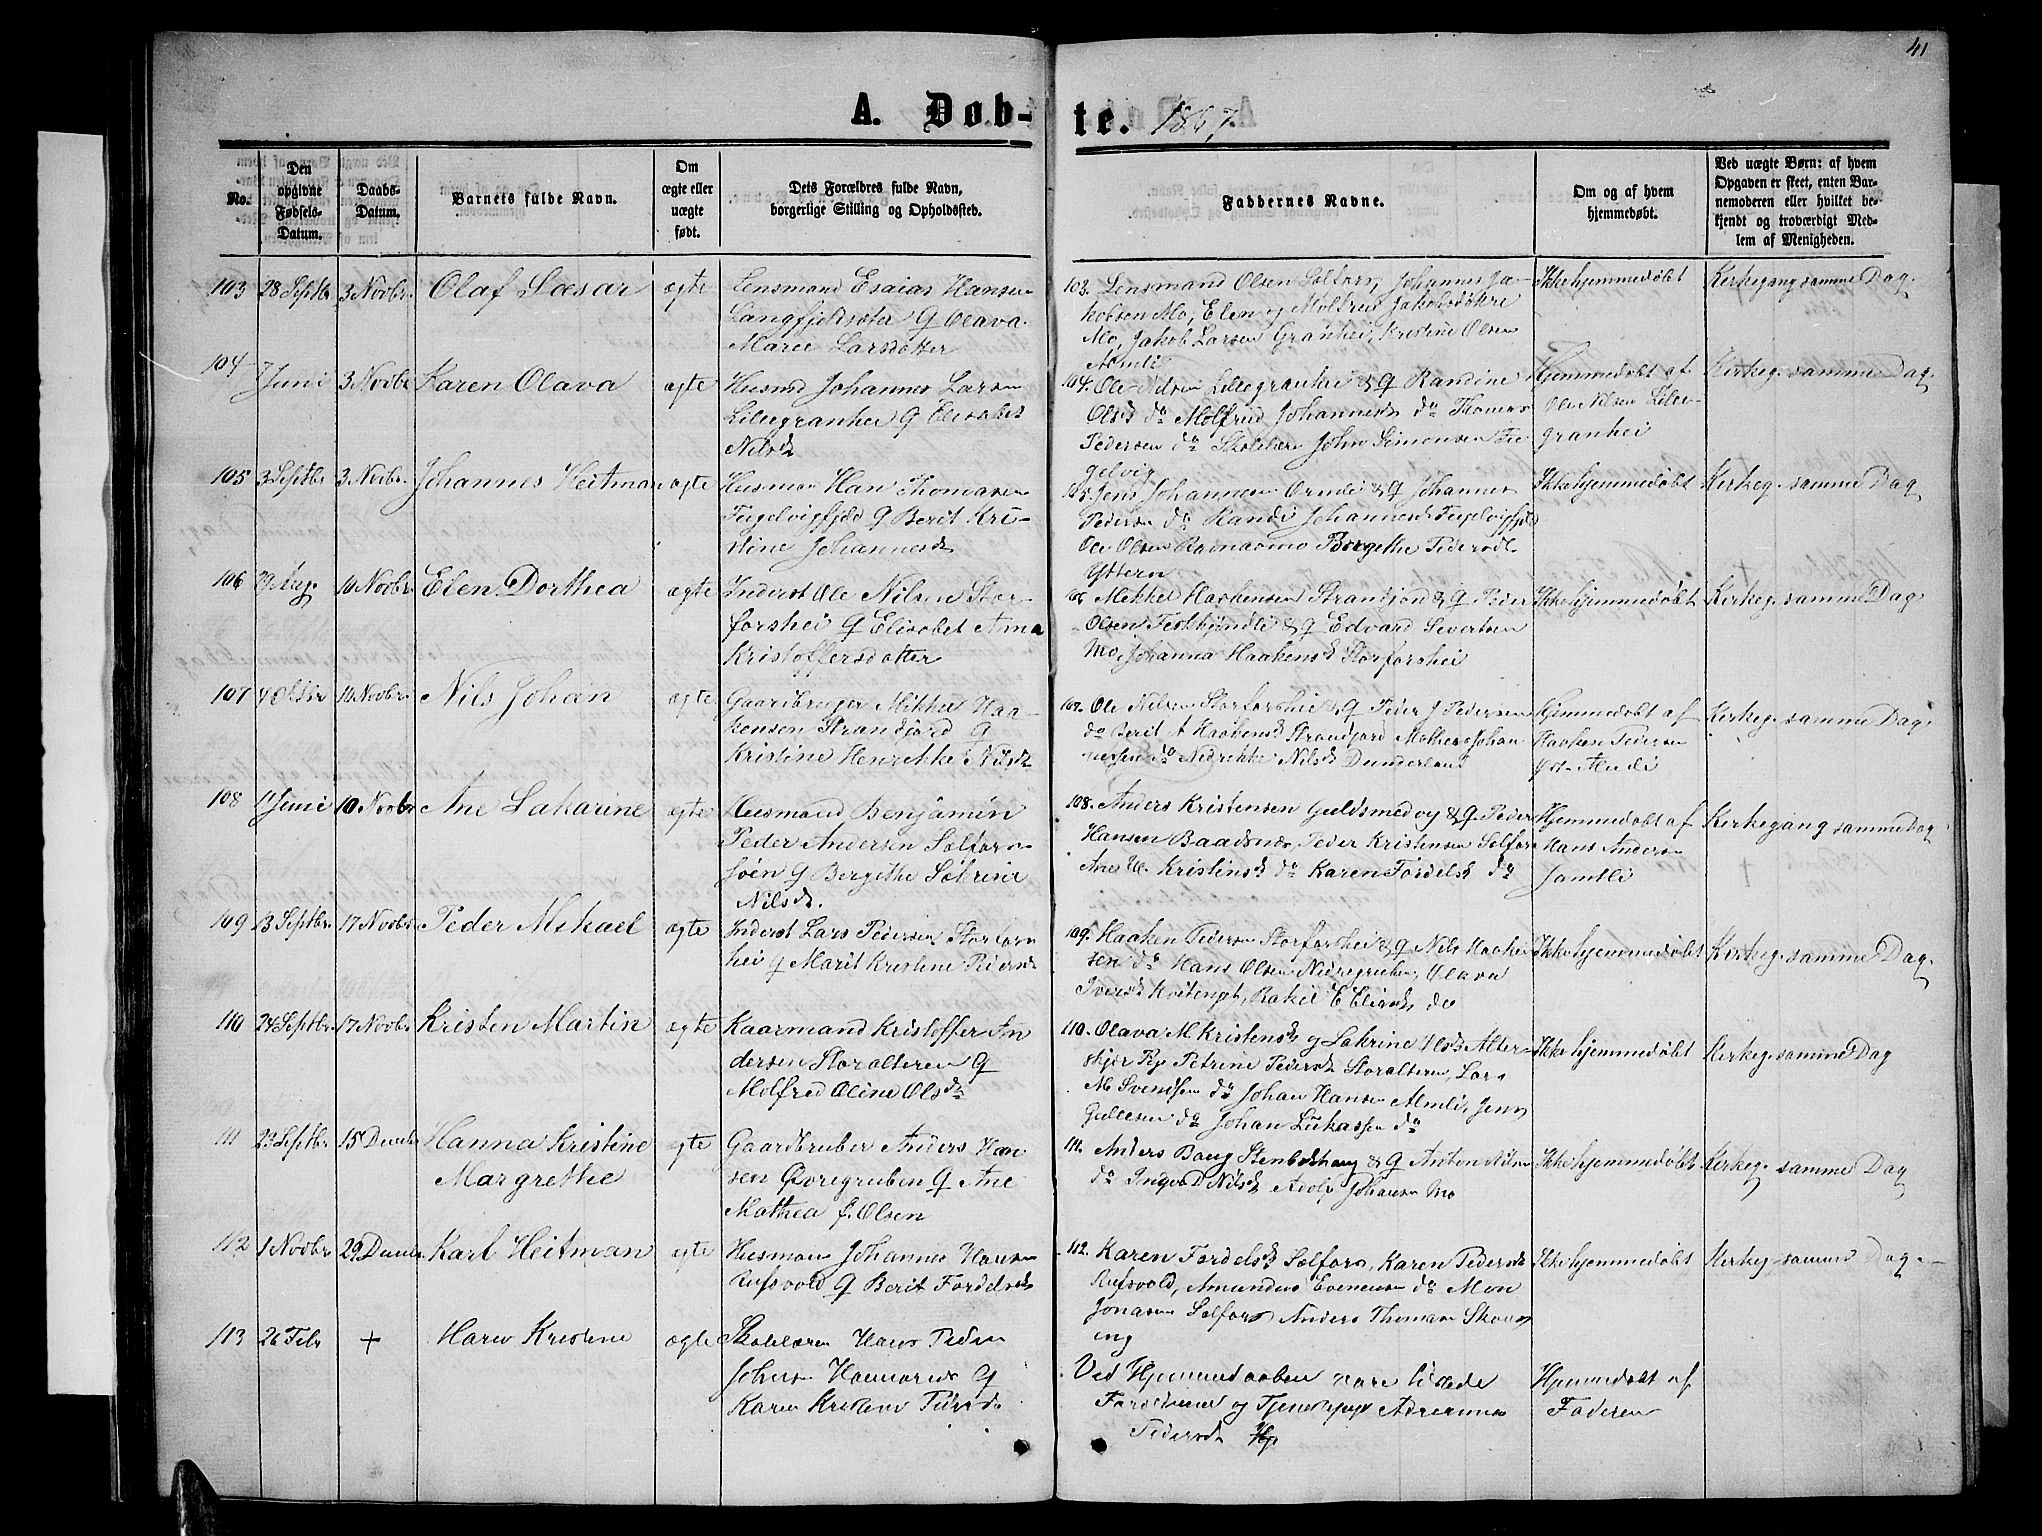 41
A. Døb-te. 1867.
No.
Den opgivne Fødsels-Datum.
Daabs-Datum.
Barnets fulde Navn.
Om ægte eller uægte født.
Dets Forældres fulde Navn, borgerlige Stilling og Opholdssted.
Faddernes Navne.
Om og af hvem hjemmedøbt.
Ved uægte Børn: af hvem Opgaven er skeet, enten Barnemoderen eller hvilket bekjendt og troværdigt Medlem af Menigheden.
103 28 Septbr 3 Novbr. Olaf Cæsar ægte
Lensmand Esaias Hansen
Langfjeldsæter G Olava
Marie Larsdotter
103. Lensmand Olsen Selfors, Johannes Ja-
kobsen Mo, Elen og Molfred Jakobsdøttre
Mo, Jakob Larsen Granhei, Kristine Olsen
Almli
Ikke hjemmedøbt
Kirkegang samme Dag.
104 7 Juni 3 Novbr Karen Olava ægte
Husmd Johannes Larsen
Lillegranhei G Elisabet
Nilsd.
104. Ole Nilsen Lillegranhei & G Randine
Olsd do Molfred Johannesd. do Thomas
Pedersen do Skolelær John Simonsen Fu
gelvig
Hjemmedøbt af
Ole Nilsen Lille-
granhei
Kirkeg. samme Dag.
105 3 Septbr 3 Novbr. Johannes Heitman ægte
Husman Han Thomasen
Fugelvigfjeld G Berit Kri-
stine Johannesd.
105. Jens Johannesen Ormli & G Johannes
Pedersen do Randi Johannesd. Fugelvigfjeld
Ole Olsen Bergethe Pedersd.
Yttern
Ikke hjemmedøbt
Kirkeg. samme Dag
106 29 Aug. 10 Novbr. Elen Dorthea ægte
Inderst Ole Nilsen Stor-
forshei G Elisabet Anna
Kristoffersdotter
106. Mikkel Haakensen Strandjord & G Peder
Olsen & G Edvard Sivertsen
Mo, Johanna Haakensd. Storforshei
Ikke hjemmedøbt
Kirkeg. samme Dag
107 4 Oktbr 10 Novbr. Nils Johan ægte
Gaardbruger Mikkel Haa-
kensen Strandjord G
Kristine Henrikke Nilsd.
107. Ole Nilsen Storforshei & G Peder J Pedersen
do Berit A Haakensd. Strandjord Mathias Johan
nessen do Nilsd. Dunderland
Hjemmedøbt af
Haaken Pedersen
Almli
Kirkeg. samme Dag.
108 11 Juni 10 Novbr Ane Lakarine ægte
Husmand Benjamin
Peder Andersen Selfors-
G Bergethe Sebrine
Nilsd.
108. Anders Kristensen Guldsmedvig & G Peder
Hansen Baadsnes, Peder Kristensen Selfors
Ane M. Kristensd. do Karen Fordelsd. do
Hjemmedøbt af
Hans Andersen
Jamtli
Kirkegang samme Dag
+
109 13 Septbr. 17 Novbr. Peder Mikael ægte
Inderst Lars Pedersen Storfors
hei G Marit Kristine Pedersd.
109. Haaken Pedersen Storforshei & G Nils Haaken
sen do Hans Olsen Nedregruben, Olava
Iversd. Kvitenget, Rakel do
Ikke hjemmedøbt
Kirkeg. samme Dag.
110 24 Septbr. 17 Novbr. Kristen Martin ægte
Kaarmand Kristoffer An
dersen Storalteren G
Molfred Oline Olsd.
110. Olava M Kristensd. og Lakrine Alter-
skjær Pp Petrine Pedersd. Storalteren, Lars
M Svendsen do Johan Hansen Almli, Jens
Gullesen do Johan Lukassen do
Ikke hjemmedøbt
Kirkeg. samme Dag
111 23 Septbr 15 Decebr Hanna Kristine
Margrethe ægte
Gaardbruber Anders Han
sen Øvregruben G Ane
Mathea f. Olsen
111. Anders Baug Stenbekhaug & G Anton
do Inger D Nilsd. Adolf Johansen Mo
Ikke hjemmedøbt
Kirkeg. samme Dag
112 1 Novbr 29 Decebr. Karl Heitman ægte
Husman Johannes Hansen
Rufsvold G Berit Fordelsd.
112. Karen Fordelsd. Selfors, Karen Pedersd
Rufsvold, Amundus Evensen do Mon
Jonasen Selfors Anders Thomasen Skon
ing
Ikke hjemmedøbt
Kirkeg. samme Dag.
113 26 Febr + Maren Kristine ægte
Skolelæren Hans Peder
Johnsen Hammernes G
Karen Kristine Pedersd.
Ved Hjemmedaaben vare tilstede
Forældrene og Tjenestepige Adrianna
Pedersd.
Hjemmedøbt af
Faderen